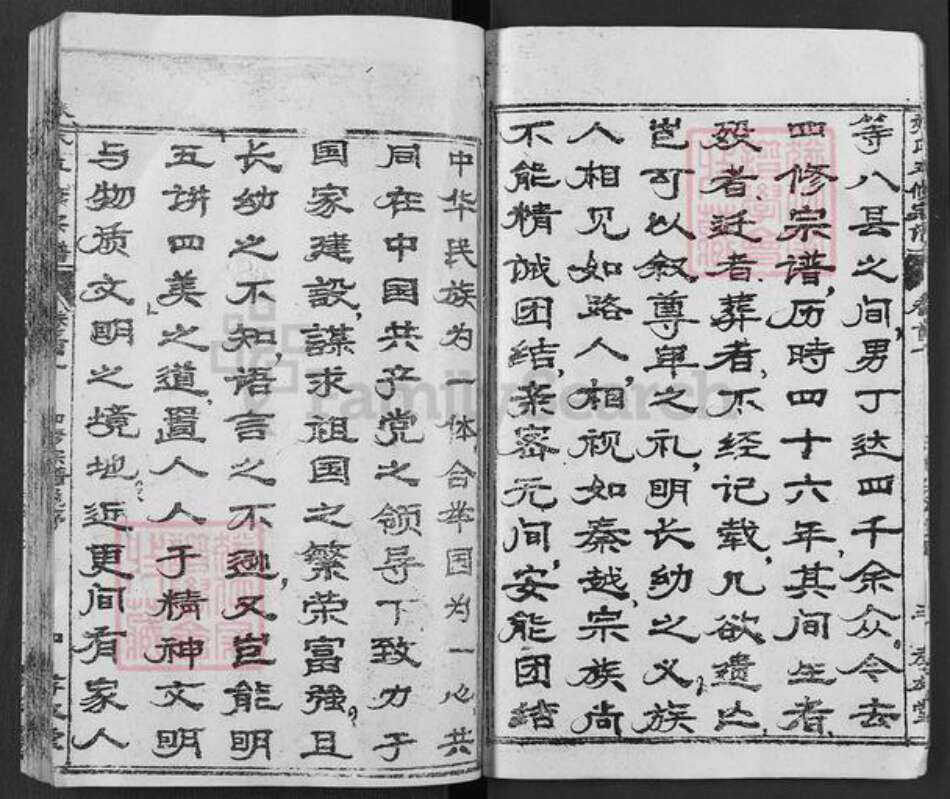 等八县之间,男丁达四千余众。今去
四修宗谱,历時四十六年,其间生者,
殁者,迁者,葬者,不经记载,几欲遗亡,
岂可以叙尊卑之礼,明长幼之义?族
人相见如路人,相视如秦越,宗族尚
不能精诚团结,亲密无间,安能团结
中华民族为一体,合举国为一心,共
同在中国共产党之领导下致力于
国家建設,謀求祖国之繁荣富強?且
长幼之不知,语言之不逊,又岂能明
五讲四美之道,置人人于精神文明
与物质文明之境地?近更间有家人
FamilySearch